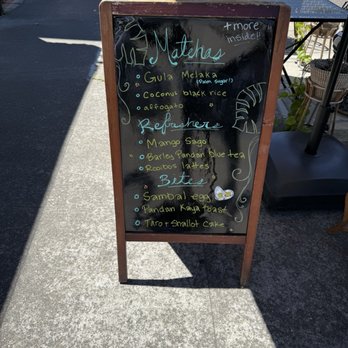 + more
inside!!
Matchas
Gula Melaka
(Palm Sugar!)
Coconut black rice
affogato
Refreshers
Mango Sago
Barley Pandan Blue tea
Rooibos lattes
Bites
Sambal egg
Pandan Kaya toast
Taro + Shallot Cake